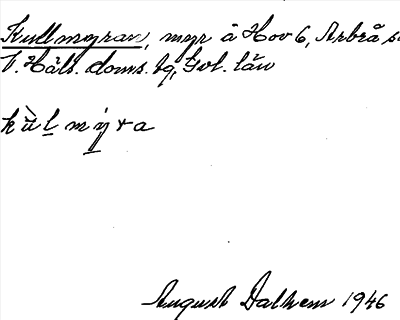 Kullmyran, myr å Hov 6, Arbrå s
V. Häls. doms. tg, Gvl. län
kùlmýra
August Dalhem 1946